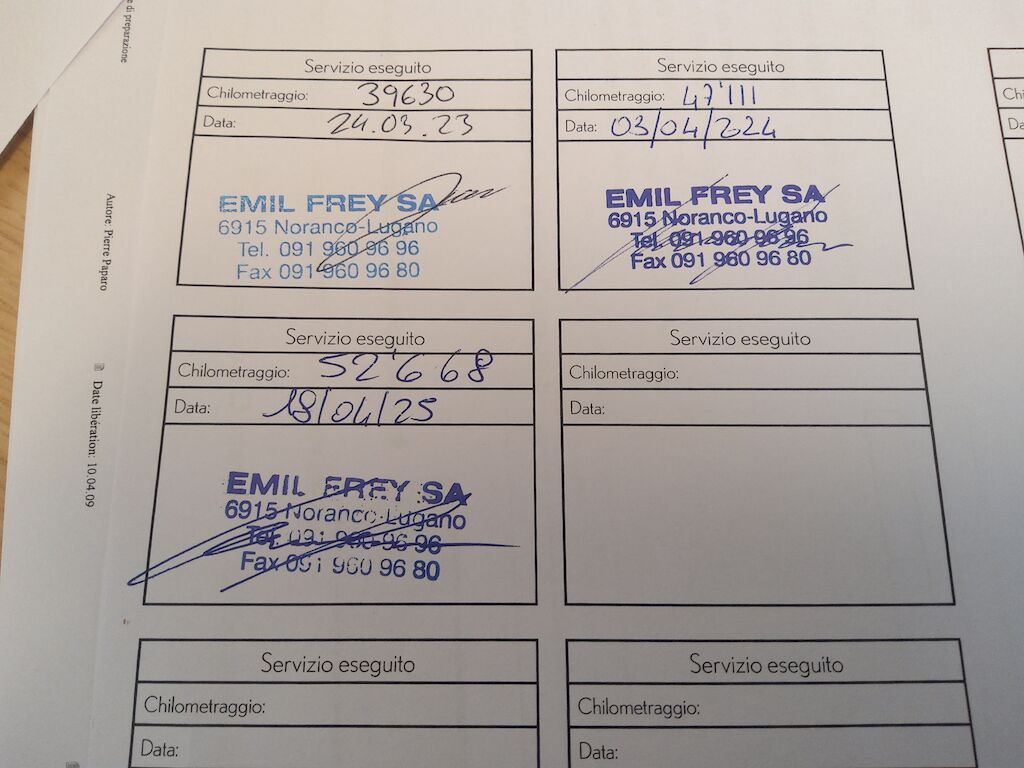 e di preparazione
Autore: Pierre Paparo
Date libération: 10.04.09
Servizio eseguito
Chilometraggio: 39630
Data: 24.03.23
EMIL FREY SA
6915 Noranco-Lugano
Tel. 091 960 96 96
Fax 091 960 96 80
Servizio eseguito
Chilometraggio: 47'111
Data: 03/04/2024
EMIL FREY SA
6915 Noranco-Lugano
Tel. 091 960 96 96
Fax 091 960 96 80
Servizio eseguito
Chilometraggio: 52'668
Data: 18/04/25
EMIL FREY SA
6915 Noranco-Lugano
Tel. 091 960 96 96
Fax 091 960 96 80
Servizio eseguito
Chilometraggio:
Data:
Servizio eseguito
Chilometraggio:
Data:
Servizio eseguito
Chilometraggio:
Data:
Chi
Da